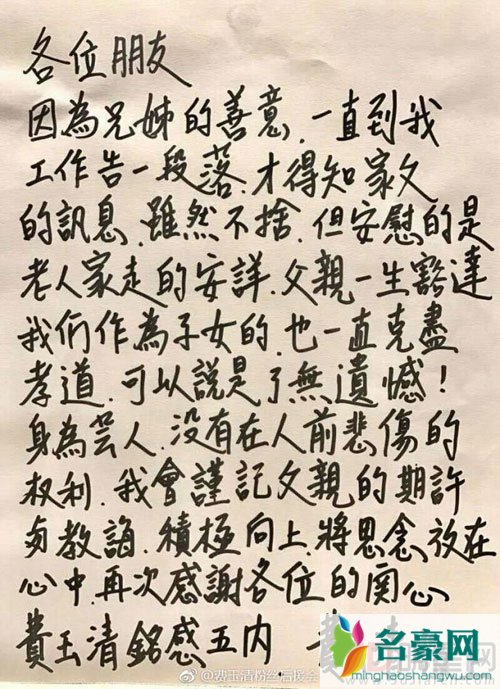 各位朋友
因為兄姊的善意.一直到我
工作告一段落.才得知家父
的訊息.雖然不捨.但安慰的是
老人家走的安詳.父親一生豁達
我们作為子女的.也一直克盡
孝道.可以說是了無遺憾!
身為芸人.没有在人前悲傷的
权利.我會謹記父親的期許
与教誨.積極向上.將思念放在
心中.再次感謝各位的関心
費玉清銘感五内
@费玉清粉丝后援会
名豪网
minghaoshangwu.com